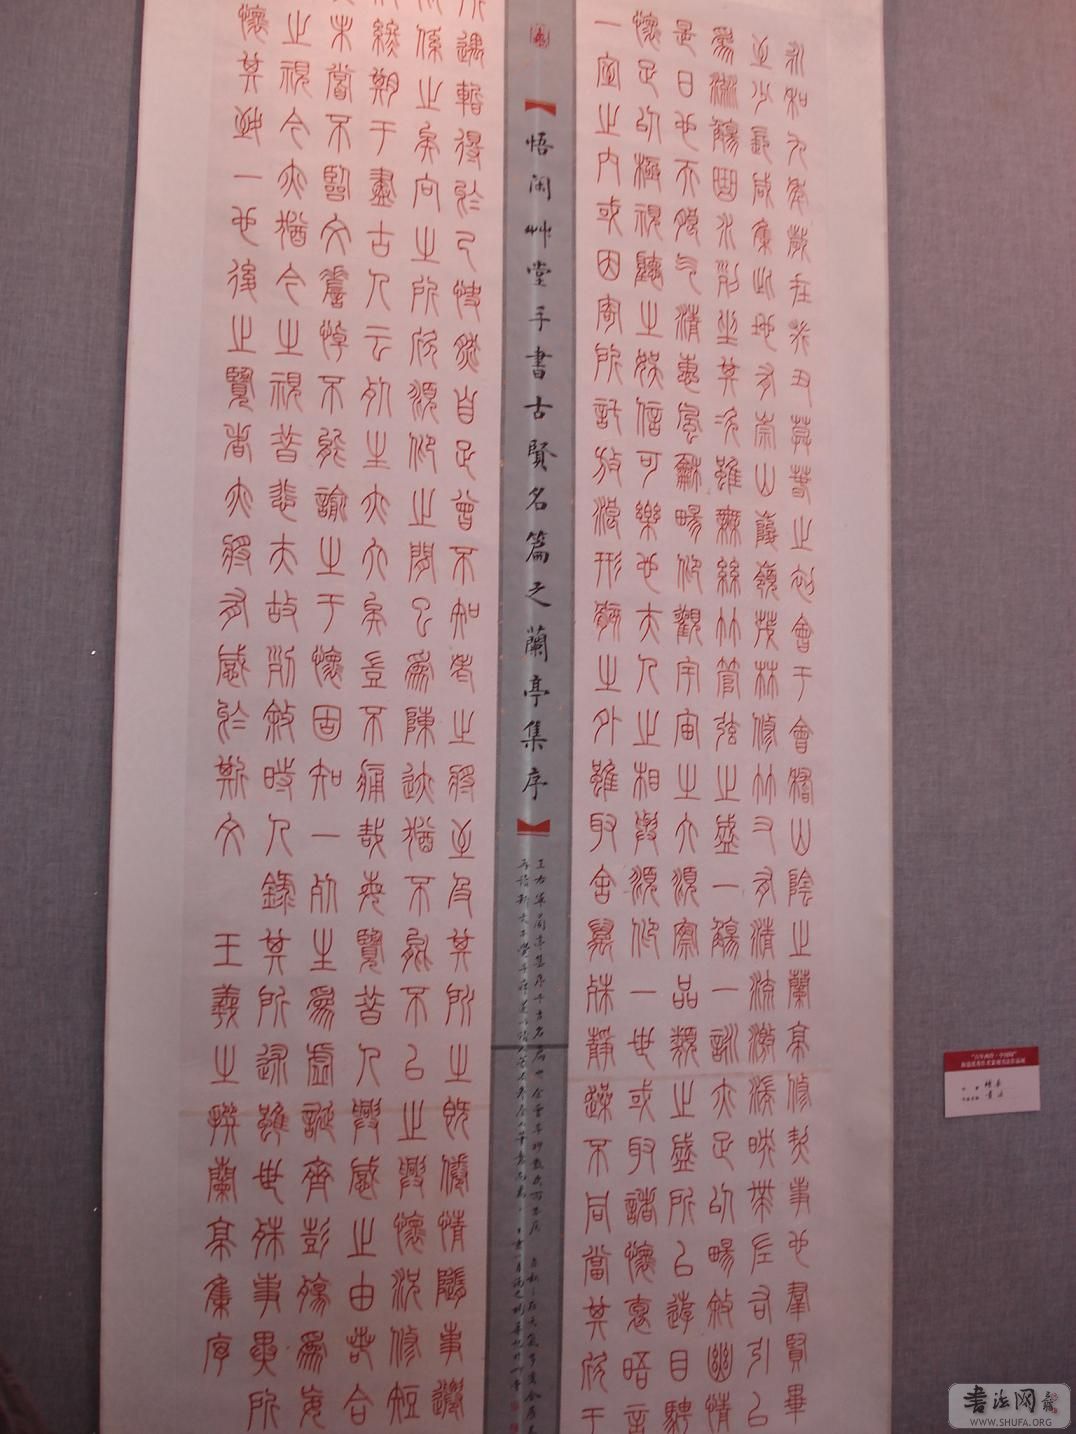 永和九年歲在癸丑莫萅之初會于會稽山陰之蘭亭修禊事也羣賢畢
至少長咸集此地有崇山峻嶺茂林修竹又有清流激湍映帶左右引以
爲流觴曲水列坐其次雖無絲竹管弦之盛一觴一詠亦足以暢敘幽情
是日也天朗气清惠風龢暢仰觀宇宙之大俯察品類之盛所以遊目騁
懷足以極視聽之娛信可樂也夫人之相與俯仰一世或取諸懷抱晤言
一室之内或因寄所託放浪形骸之外雖取舍異殊靜躁不同當其欣于
悟闲艸堂手書古賢名篇之蘭亭集序
所遇暫得於己快然自足曾不知老之將至及其所之既倦情隨事遷
係之矣向之所欣俯仰之閒以爲陳迹猶不能不以之興懷況修短
終期于盡古人云死生亦大矣豈不痛哉每覽昔人興感之由若合
未嘗不臨文嗟悼不能喻之于懷固知一死生爲虛誕齊彭殤爲妄
之視今亦猶今之視昔悲夫故列敘時人錄其所述雖世殊事異所
懷其致一也後之覽者亦將有感於斯文 王羲之撰蘭亭集序
書法网
WWW.SHUFA.ORG